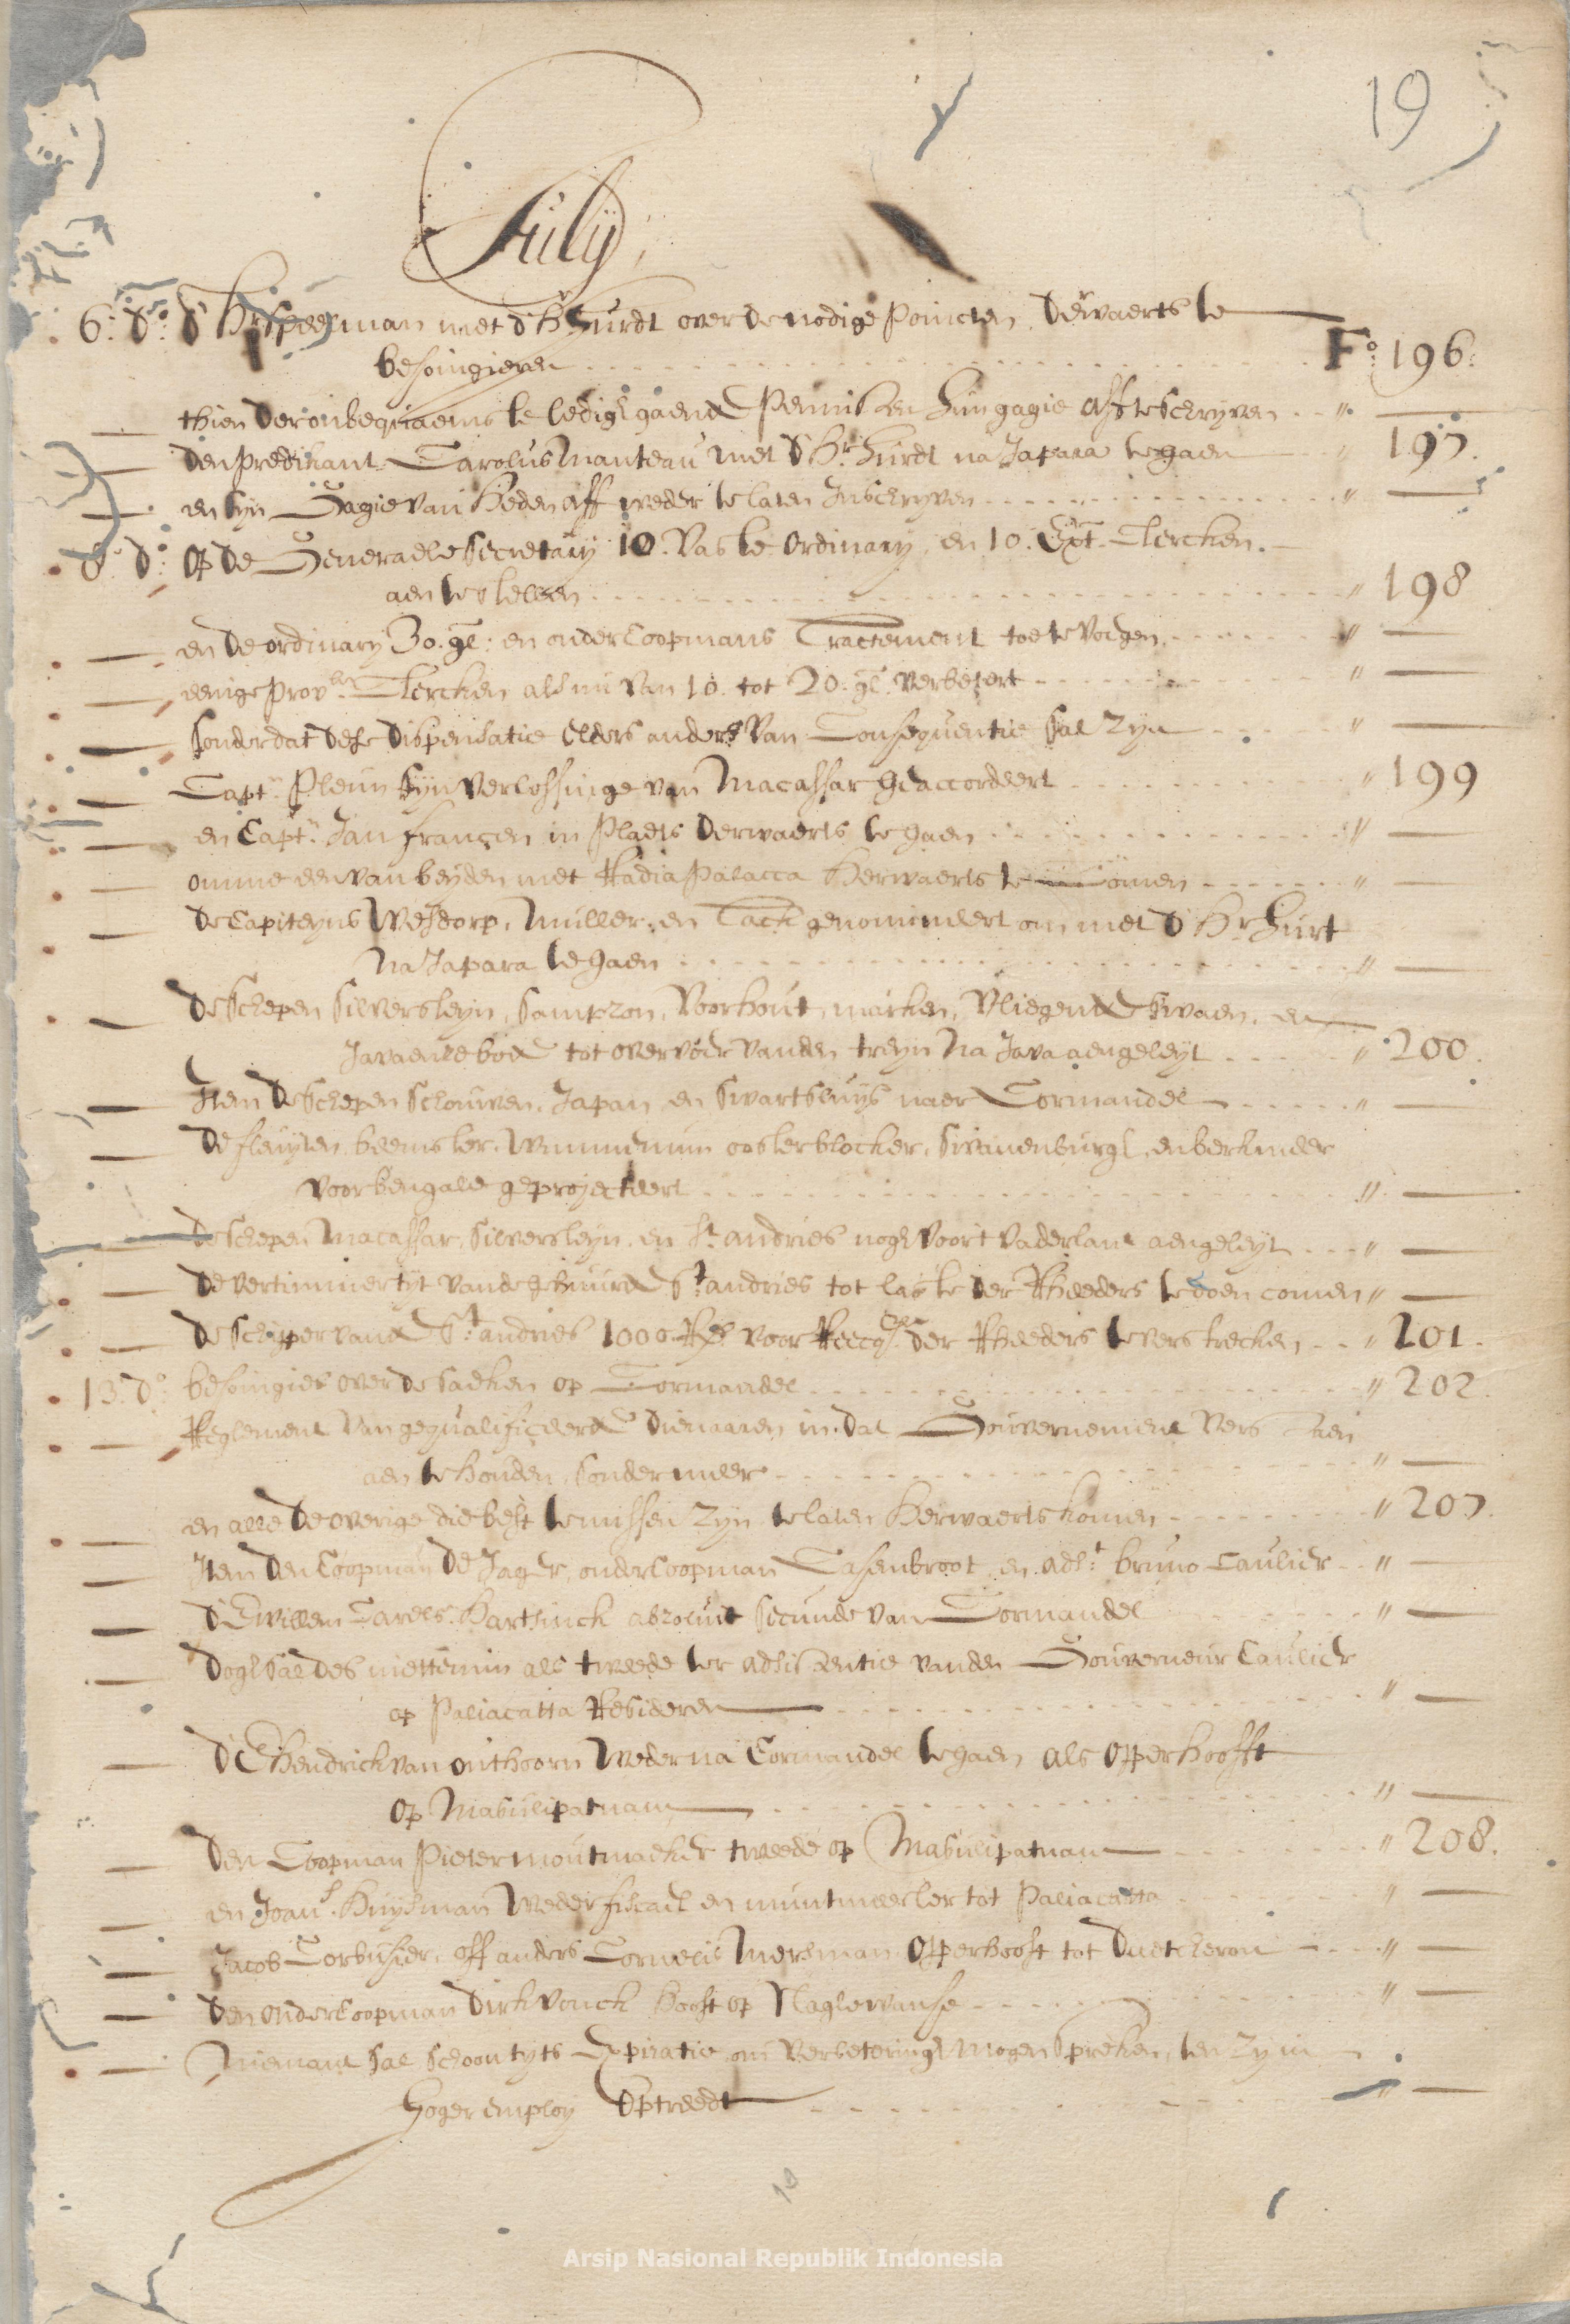 19
July
6: d:o d' H:r Speelman met d' H:r Hurdt over de nodige Poincten, derwaerts te
besoingieren F:o 196:
thien der onbequaemste ledigh gaende Pennisten hun gagie aff te schryven "
den Predikant Carolus Manteau met d' H:r Hurdt na Japara te gaen " 197.
en syn Gagie van heden aff weder te laten Inschryven "
d:o Op de Generaele Secretary 10. Vaste Ordinary, en 10. Ext: Clercken.
aen te stellen " 198
en de ordinary 30. gl: en onder Coopmans Tractement toe te voegen "
eenige Prov:le Clercken als nu van 10. tot 20. gl: verbetert "
sonder dat dese dispensatie elders anders van Consequentie sal zyn "
Capt:n Pleun syn verlossinge van Macassar geaccordeert " 199
en Capt:n Jan françen in Plaets derwaerts te gaen "
omme een van beyden met Radia Palacca herwaerts te comen "
de Capiteyns Wesdorp, Muller, en Tack genomineert om met d' H:r Hurt
na Japara te gaen "
de Schepen Silversteyn, Sampzon, Voorhout, marken, Vliegende Swaen, en
Javaense bode tot overvoer vanden treyn Na Java aengeleyt " 200.
Item de Schepen Schouwen, Japan en Swartsluys naer Cormandel "
de fleuyten, beemster, Wimmenum oosterblocker, Swanenburgh, en berkmeer
voor bengale geprojecteert "
de Schepen Macassar, Silversteyn, en S:t andries nogh voor't vaderlant aengeleyt "
de vertimmertyt vande gehuurde S:t andries tot laste der Rheeders te doen comen "
de Schipper vande S:t andries 1000. R:s voor Reecq: der Rheeders te verstrecken " 201.
13. d:o besoingies over de saeken op Cormandel " 202.
Reglement van gequalificeerde dienaaren in dat Gouvernement Vers
aen te houden, sonder meer "
en alle de overige die best te missen zyn te laten herwaerts komen " 207.
Item den Coopman de Jager, onder Coopman Casenbroot, en ads:t bruno Caulier "
d' E Willem Carels Hartsinck absoluit secunde van Cormandel "
dogh sal des niettemin als tweede ter adsistentie vanden Gouverneur Caulier
op Paliacatta Resideren "
d' E Hendrick van outhoorn Weder na Cormandel te gaen als Opperhooft
Op Masulipatnam "
den Coopman Pieter moutmaeker tweede op Masulipatnam " 208.
en Joan Huysman Weder fiscael en muntmeester tot Paliacatta "
Jacob Corbusier, off anders Cornelis Meerman Opperhooft tot Daetcheron "
den onder Coopman Dirk vonck hooft op Naglewanse "
Niemant sal schoon tyts Expiratie om verbeteringh mogen spreken, ten zy in
hoger employ Optreedt "
Arsip Nasional Republik Indonesia